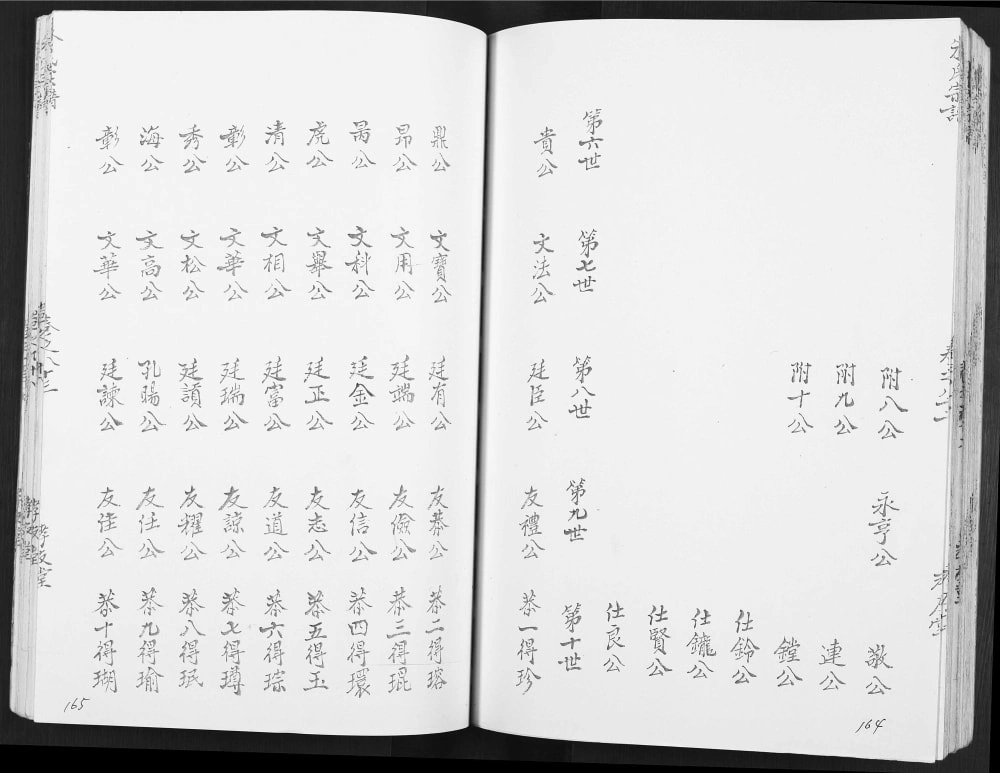 附八公
永亨公
敬公
附九公
連公
附十公
鏜公
仕鈴公
仕鑨公
仕賢公
仕良公
第六世
第七世
第八世
第九世
第十世
貴公
文法公
廷臣公
友禮公
恭一得珍
164
鼎公
文寶公
廷有公
友恭公
恭二得瑢
昂公
文用公
廷端公
友儉公
恭三得琨
文科公
廷金公
友信公
恭四得環
虎公
文舉公
廷正公
友志公
恭五得玉
清公
文相公
廷富公
友道公
恭六得琮
彰公
文華公
廷瑞公
友諒公
恭七得瑼
秀公
文松公
廷讃公
友耀公
恭八得珉
海公
文高公
孔暘公
友仕公
恭九得瑜
彰公
文華公
廷諫公
友佳公
恭十得瑚
165